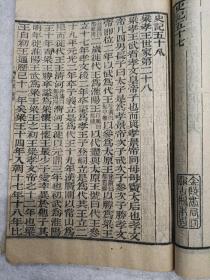 史記五十八
梁孝王世家第二十八
梁孝王武者孝文皇帝子也而與孝景帝同母母竇太后也孝文
帝凡四男長子曰太子是爲孝景帝次子武次子參次子勝孝文
帝即位二年以武爲代王以參爲太原王以勝爲梁王二歲徙代
王爲淮陽王以代盡與太原王號曰代王參立十七年孝文
後二年卒諡爲孝王子登嗣立是爲代共王立二
十九年元光二年卒子義立是爲代王十九年漢廣關以常山爲
限而徙代王王清河清河王徙以元鼎三年也初武爲淮陽王十
年而梁王勝卒諡爲梁懷王懷王最少子愛幸異於他子其
明年徙淮陽王武爲梁王梁王之初王梁孝文帝之十二年也梁
王自初王通歷已十一年矣梁王十四年入朝十七年十八年比